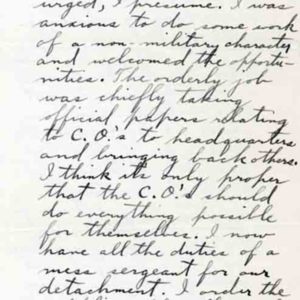 urged, I presume. I was
anxious to do some work
of a non-military character
and welcomed the opportu-
nities. The orderly job
was chiefly taking
official papers relating
to C.O.'s to headquarters
and bringing back others.
I think its only proper
that the C.O.'s should
do everything possible
for themselves. I now
have all the duties of a
mess sergeant for our
detachment. I order the